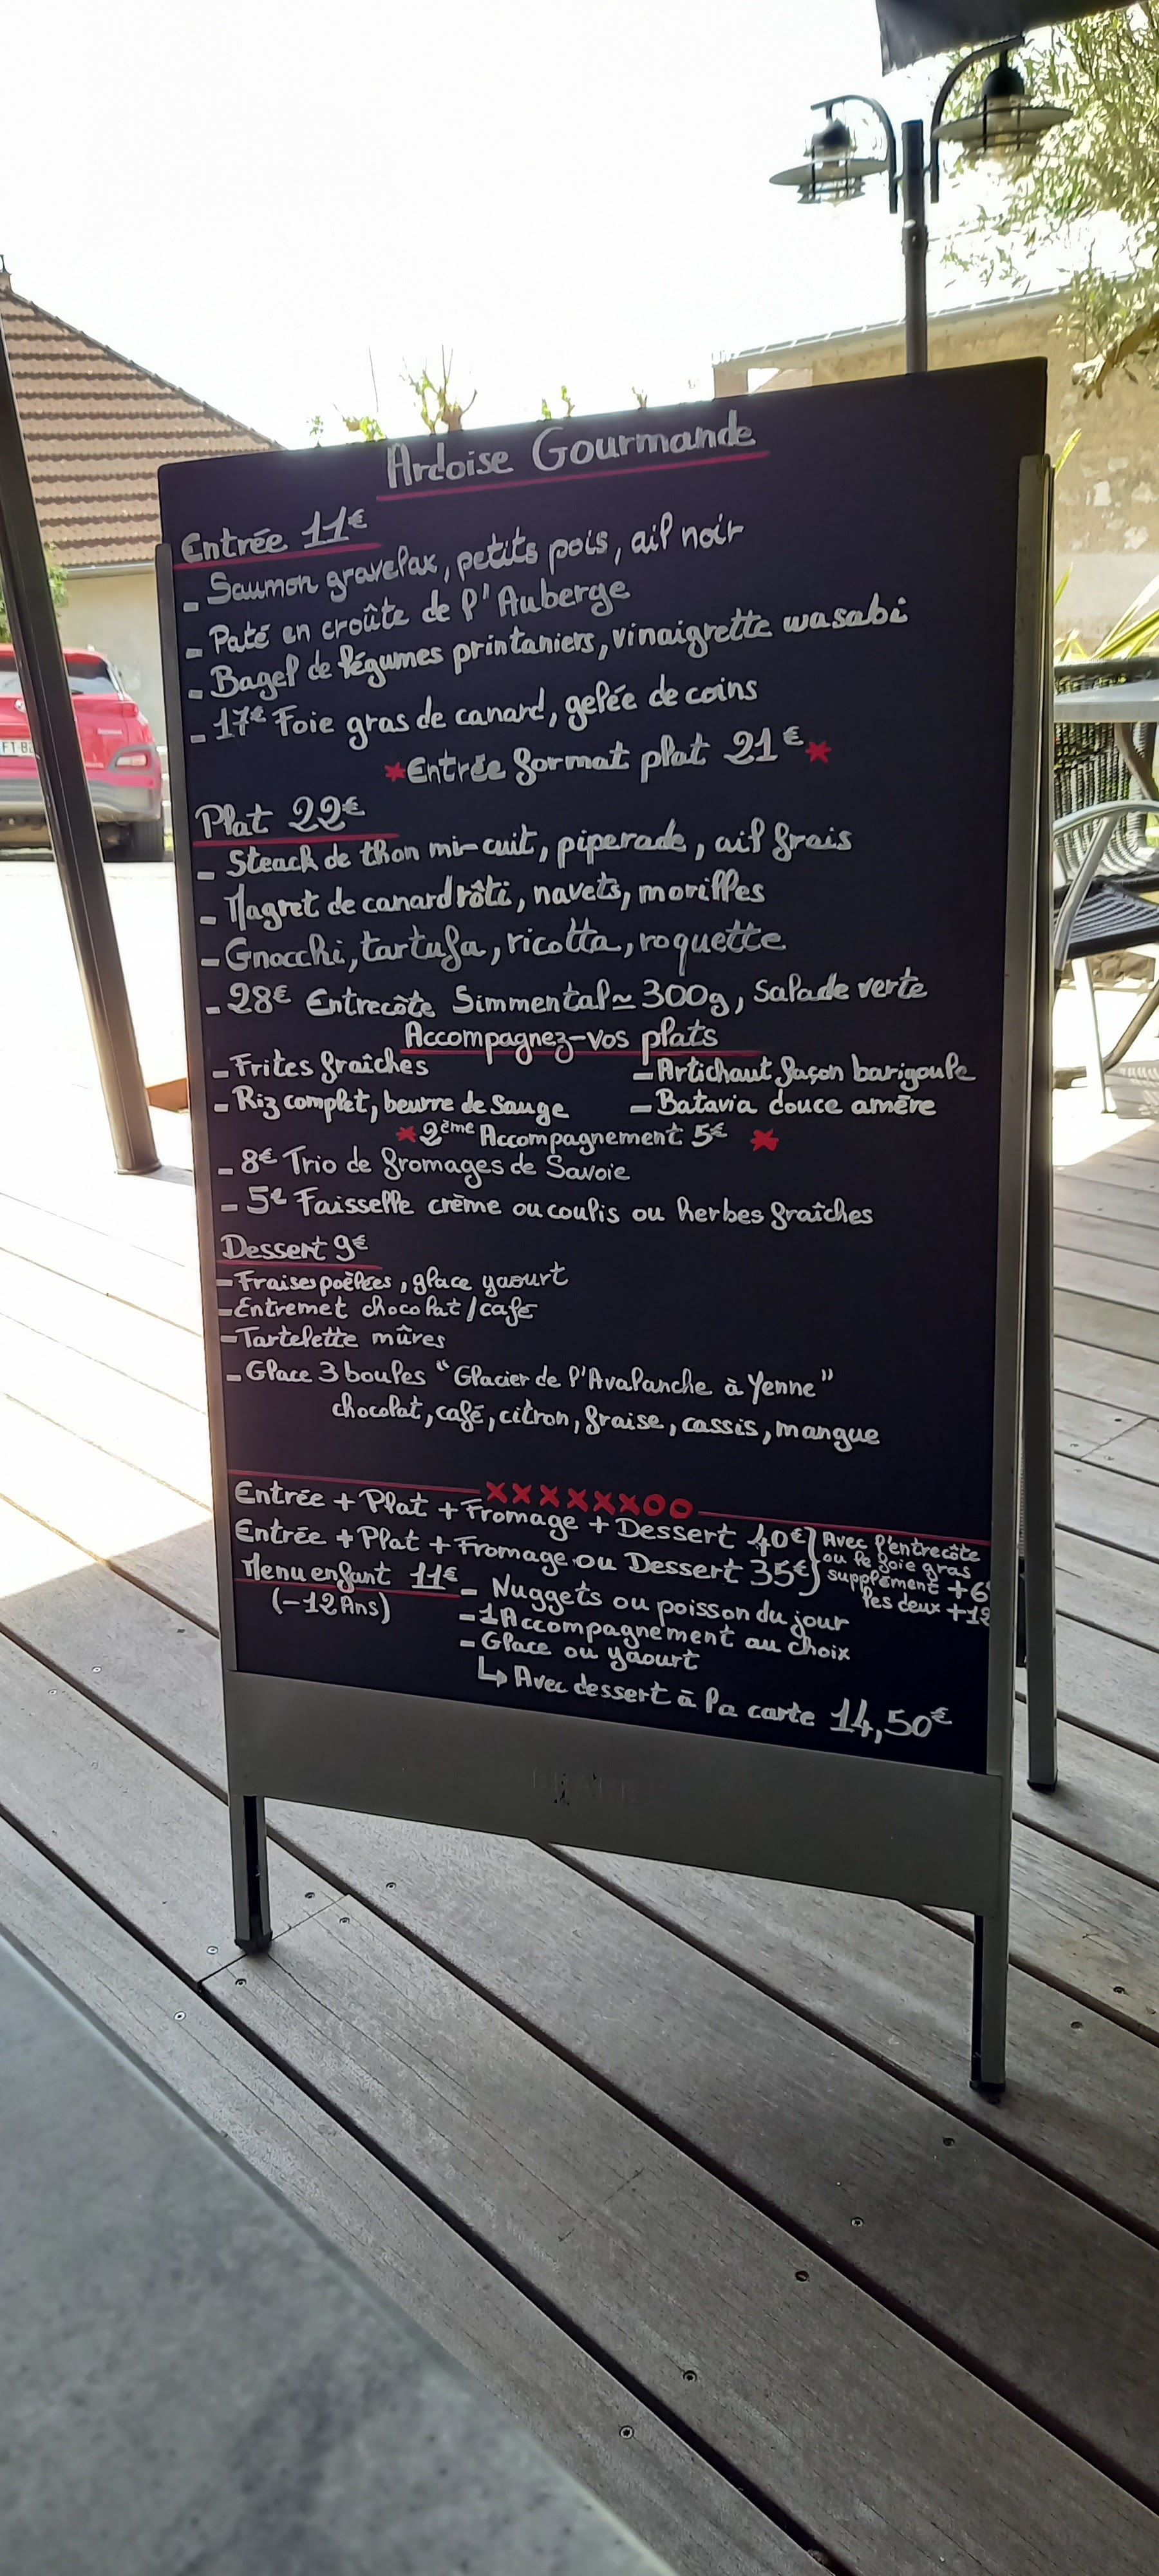 Ardoise Gourmande
Entrée 11€
- Saumon gravelax, petits pois, ail noir
- Paté en croûte de l'Auberge
- Bagel de légumes printaniers, vinaigrette wasabi
- 17€ Foie gras de canard, gelée de coins
*Entrée format plat 21€*
Plat 22€
- Steack de thon mi-cuit, piperade, ail frais
- Magret de canard rôti, navets, morilles
- Gnocchi, tartufa, ricotta, roquette
- 28€ Entrecôte Simmental ~ 300g, Salade verte
Accompagnez-vos plats
- Frites fraîches - Artichaut façon barigoule
- Riz complet, beurre de Sauge - Batavia douce amère
* 2ème Accompagnement 5€ *
- 8€ Trio de fromages de Savoie
- 5€ Faisselle crème ou coulis ou herbes fraîches
Dessert 9€
- Fraises poêlées, glace yaourt
- Entremet chocolat/café
- Tartelette mûres
- Glace 3 boules "Glacier de l'Avalanche à Yenne"
chocolat, café, citron, fraise, cassis, mangue
xxxxxxoo
Entrée + Plat + Fromage + Dessert 40€
Entrée + Plat + Fromage ou Dessert 35€
Avec l'entrecôte
ou le foie gras
supplément +6
les deux +12
Menu enfant 11€
(-12 Ans)
- Nuggets ou poisson du jour
- 1 Accompagnement au choix
- Glace ou yaourt
↳ Avec dessert à la carte 14,50€